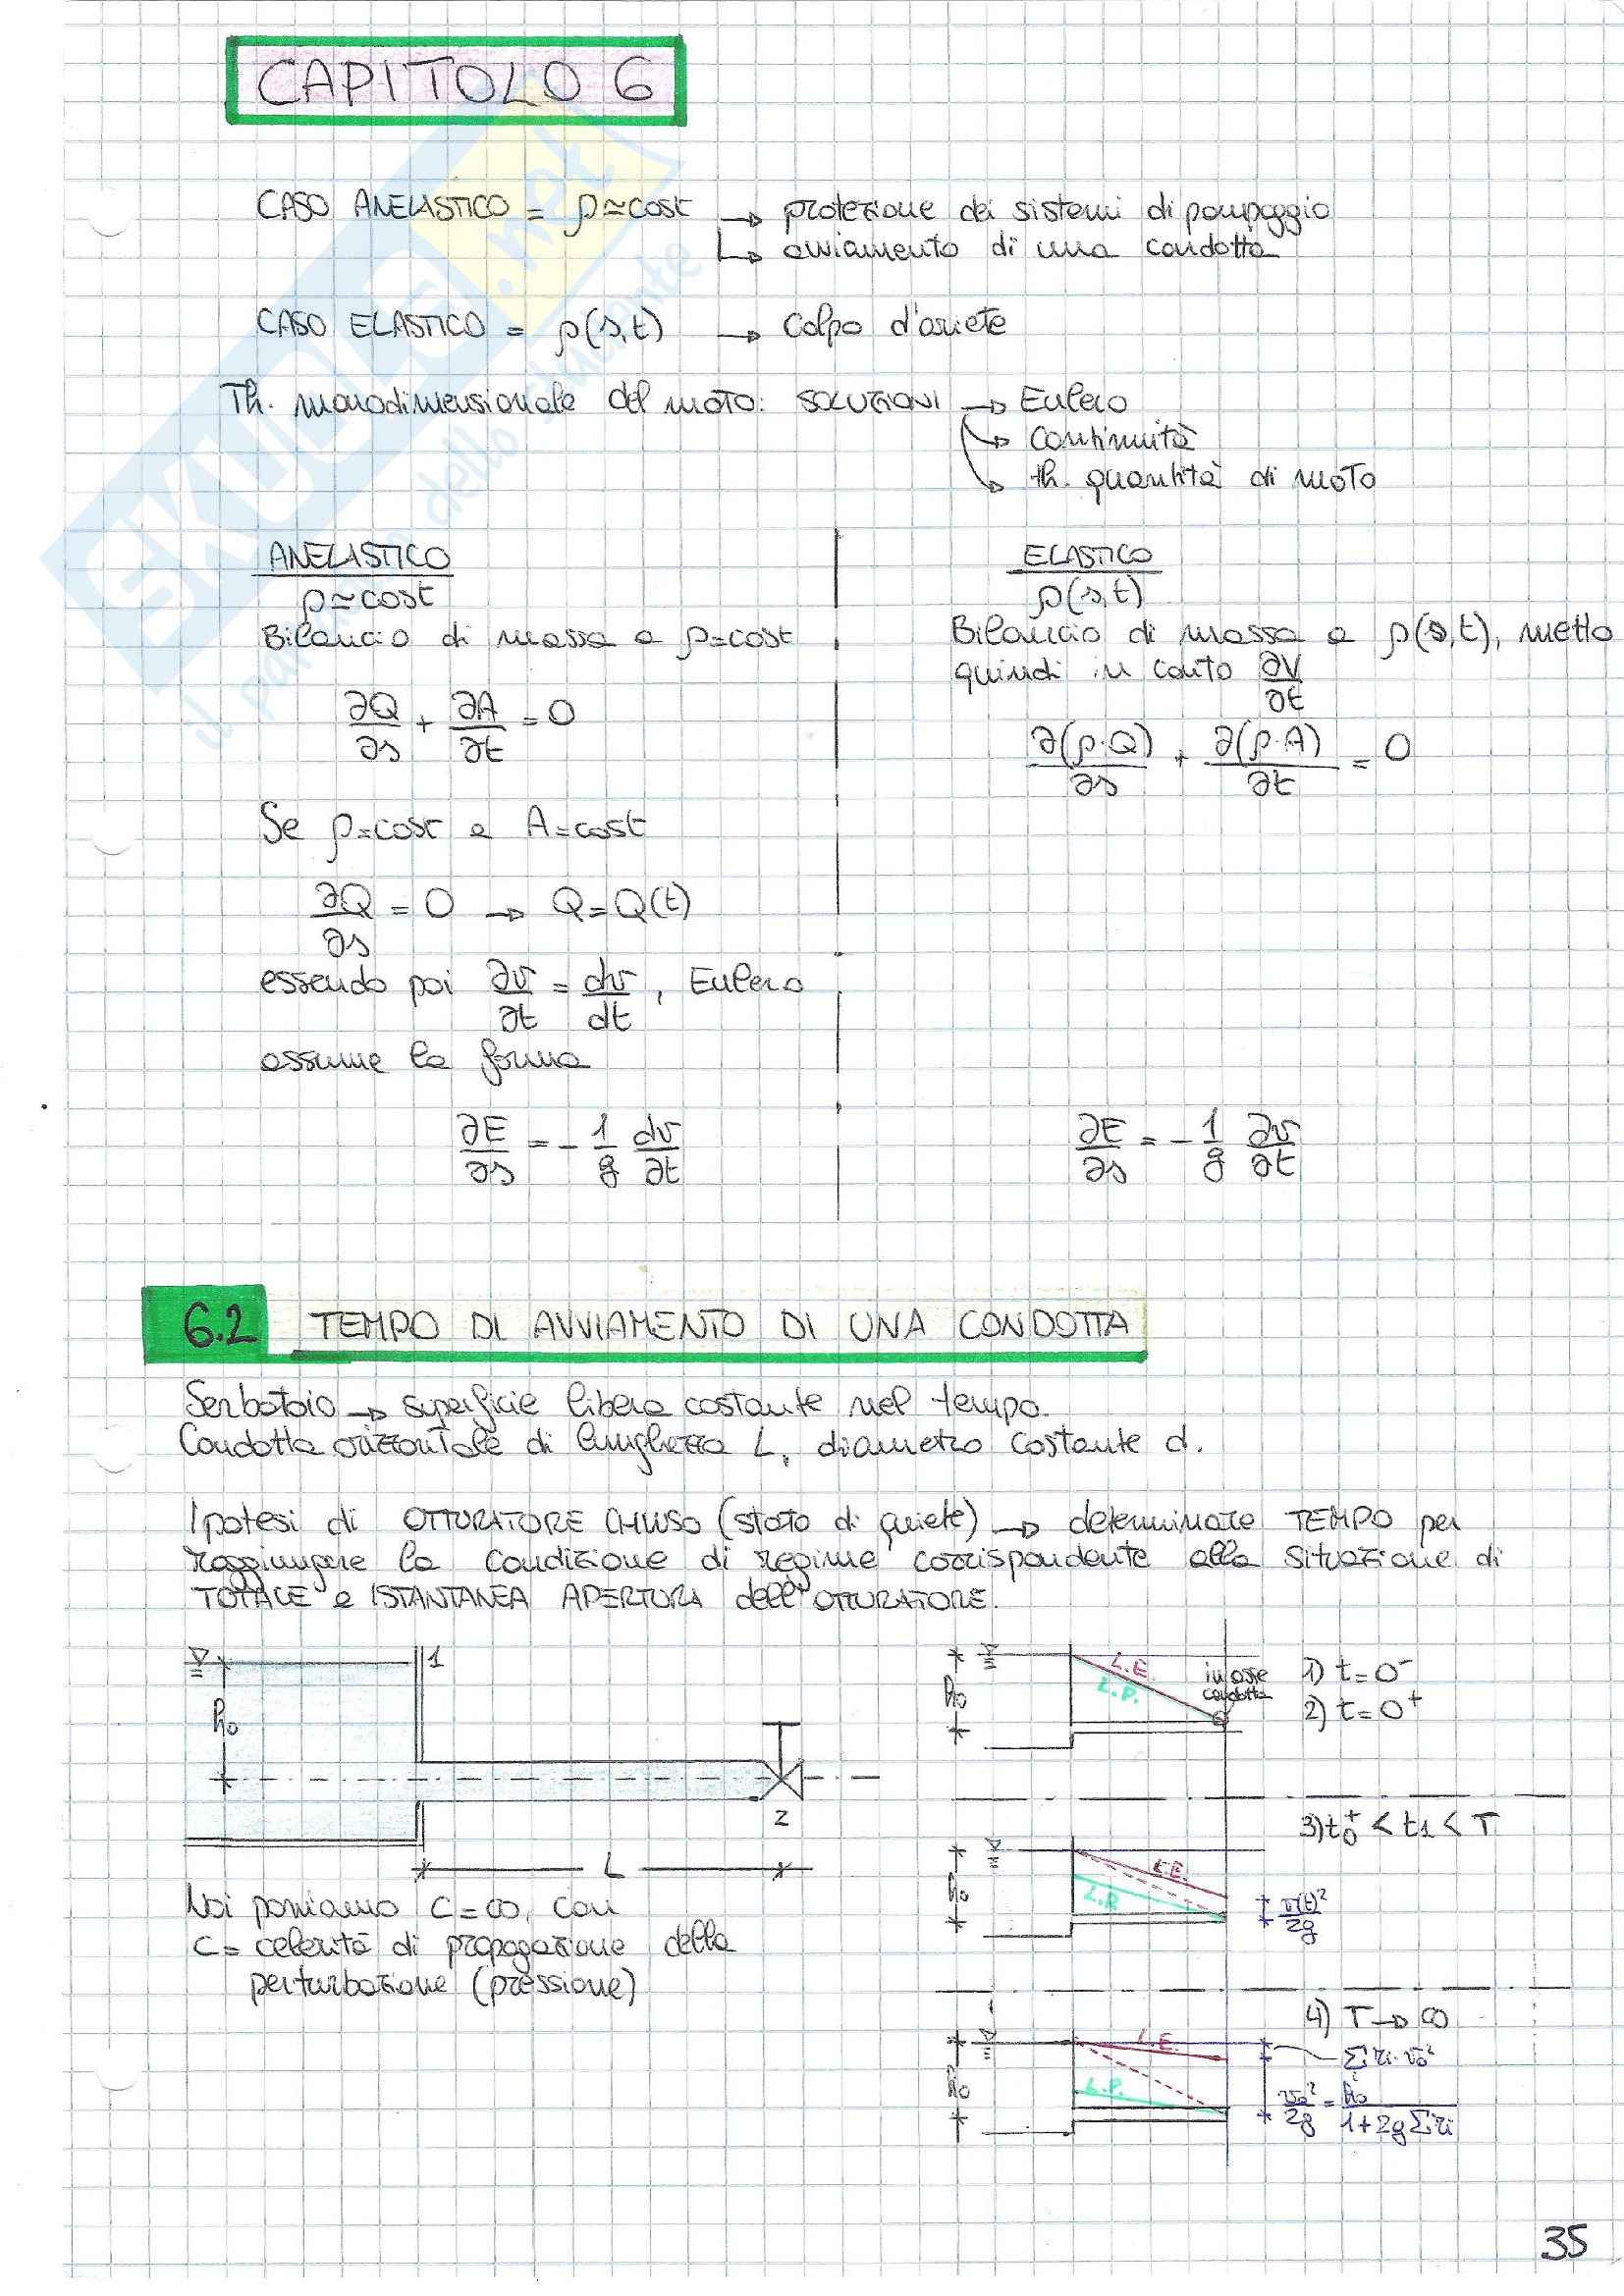 CAPITOLO 6
CASO ANELASTICO = ρ≃cost → protezione dei sistemi di pompaggio
→ avviamento di una condotta
CASO ELASTICO = ρ(s,t) → Colpo d'ariete
Th. monodimensionale del moto: SOLUZIONI → Eulero
→ Continuità
→ th. quantità di moto
ANELASTICO
ρ≃cost
Bilancio di massa a ρ=cost
∂Q/∂s + ∂A/∂t = 0
Se ρ=cost e A=cost
∂Q/∂s = 0 → Q=Q(t)
essendo poi ∂v/∂t = dv/dt, Eulero
assume la forma
∂E/∂s = - 1/g dv/∂t
ELASTICO
ρ(s,t)
Bilancio di massa a ρ(s,t), metto
quindi in conto ∂V/∂t
∂(ρ·Q)/∂s + ∂(ρ·A)/∂t = 0
∂E/∂s = - 1/g ∂v/∂t
6.2 TEMPO DI AVVIAMENTO DI UNA CONDOTTA
Serbatoio → superficie libera costante nel tempo.
Condotta orizzontale di lunghezza L, diametro costante d.
Ipotesi di OTTURATORE CHIUSO (stato di quiete) → determinare TEMPO per
raggiungere la condizione di regime corrispondente alla situazione di
TOTALE e ISTANTANEA APERTURA dell'OTTURATORE.
1
h₀
2
L
Noi poniamo C=∞, con
C= celerità di propagazione della
perturbazione (pressione)
h₀
L.E.
L.P.
in asse
condotta
1) t=0⁻
2) t=0⁺
3) t₀⁺ < t1 < T
h₀
L.E.
L.P.
v(t)²/2g
4) T→∞
h₀
L.E.
L.P.
Σri·v₀²
v₀²/2g = h₀/1+2gΣri
35
SKUOLA.net
il paradiso dello studente